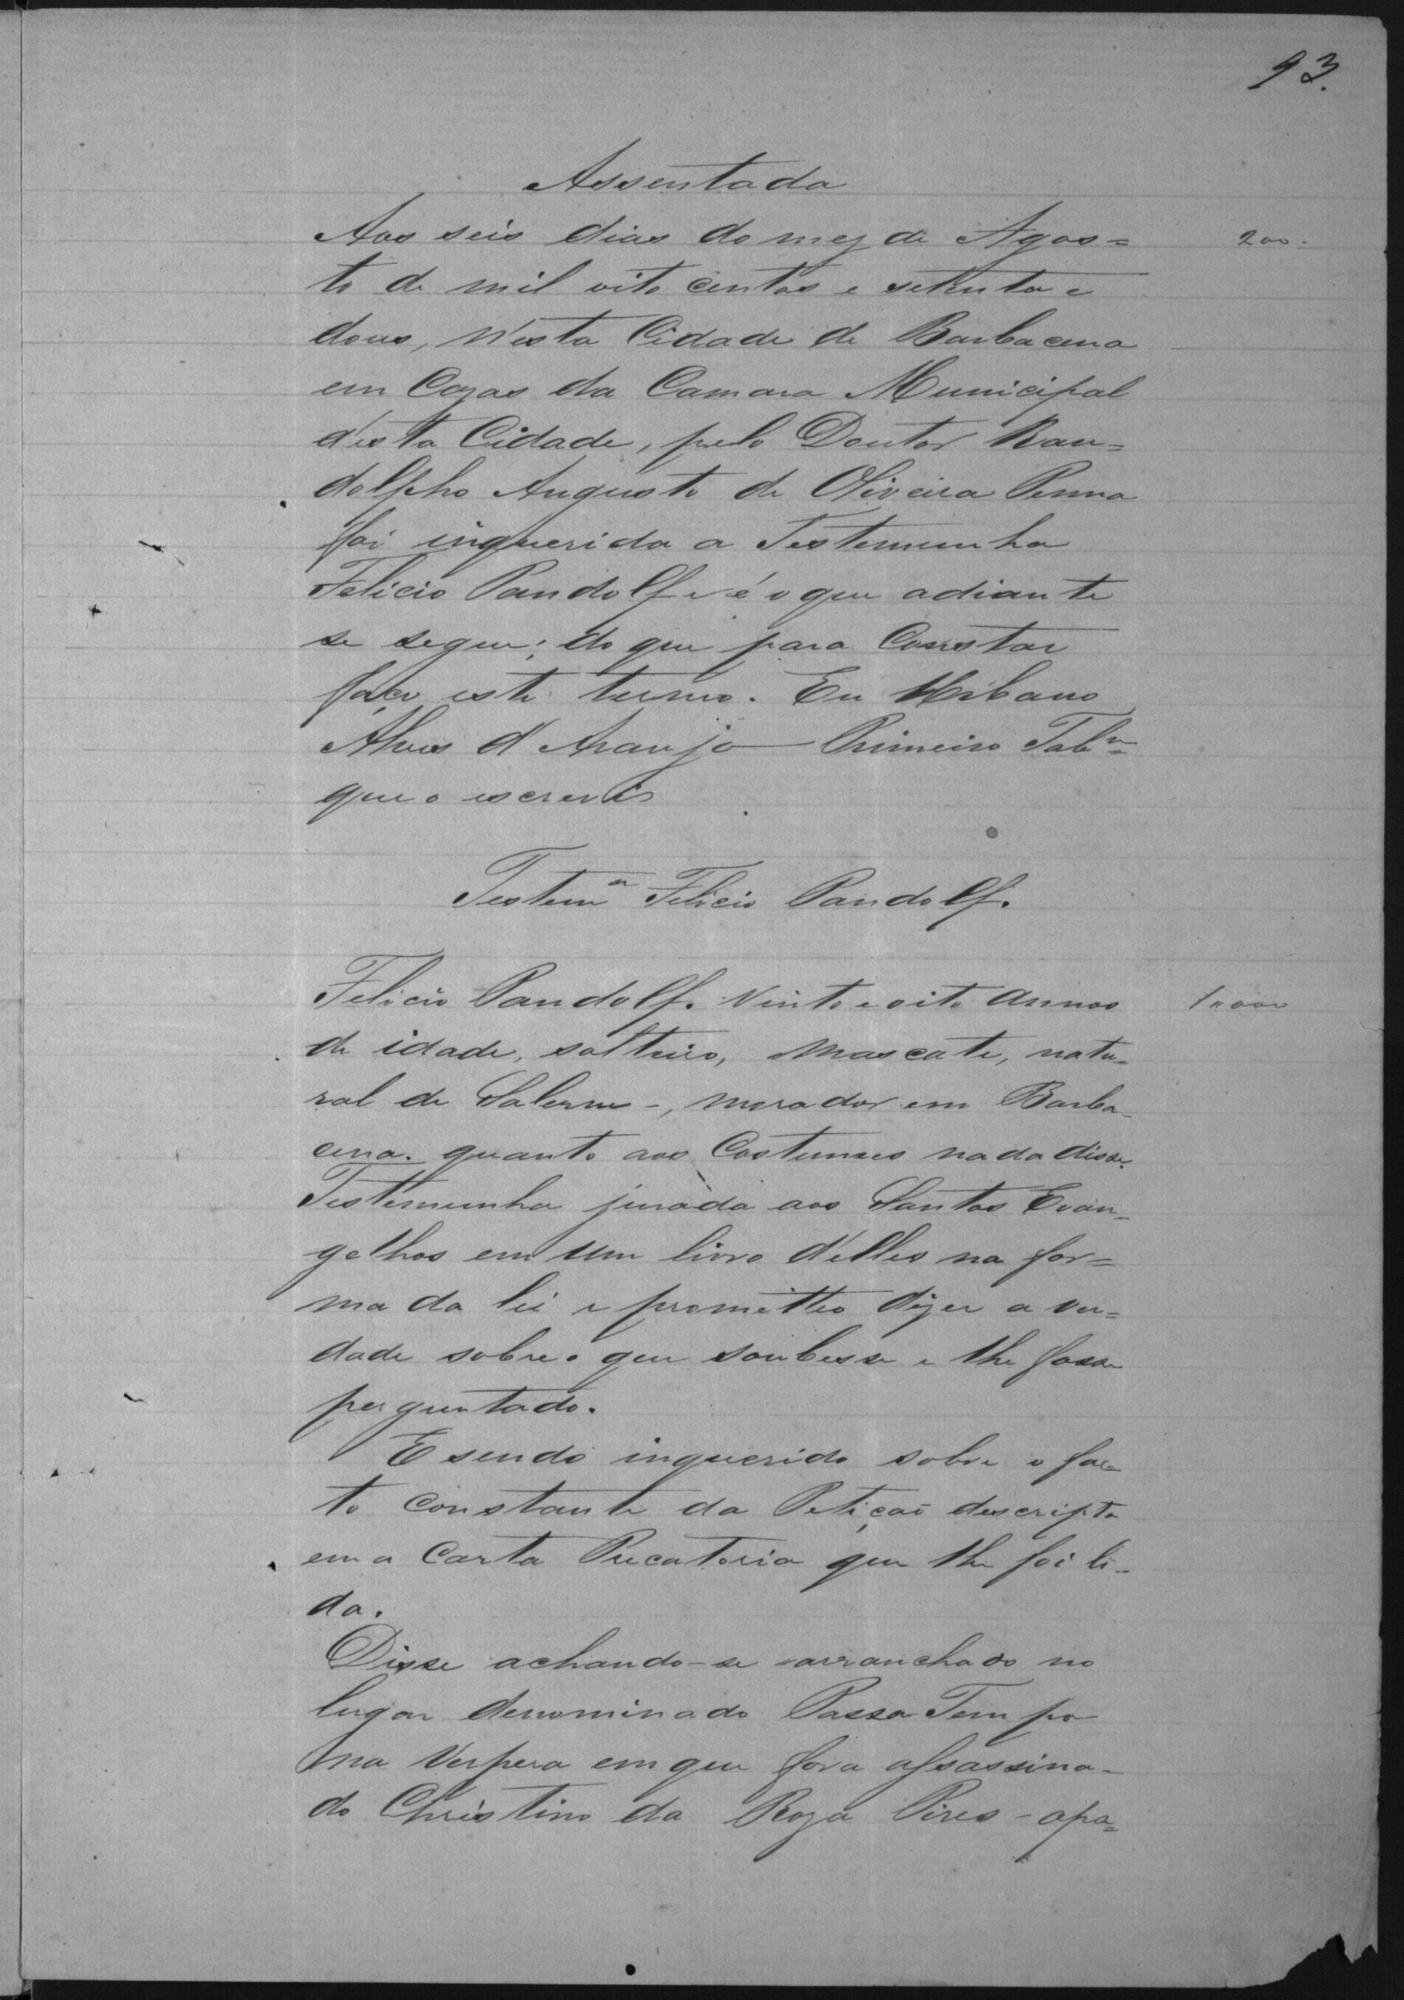 93.
Assentada
Aos seis dias do mez de Agos=
200.
to de mil oito centos e setenta e
dous, n'esta Cidade de Barbacena
em Cazas da Camara Municipal
d'esta Cidade, pelo Doutor Ran=
dolpho Augusto de Oliveira Penna
foi inquerida a Testemunha
Felicio Pandolf e é o que adiante
se segue; do que para Constar
faço este termo. Eu Urbano
Alves d'Araujo Primeiro Tab.m
que o escrevi
Testem.a Felicio Pandolf.
Felicio Pandolf. Vinte e oito annos
1"000
de idade, solteiro, Mascate, natu=
ral de Salerno -, morador em Barba-
cena. quanto aos Costumes nada disse.
Testemunha jurada aos Santos Evan-
gelhos em um livro d'elles na for=
ma da lei e prometteo dizer a ver=
dade sobre o que soubesse e lhe fosse
perguntado.
E sendo inquerido sobre o fac-
to constante da Petição descripta
em a Carta Precatoria que lhe foi li-
da.
Disse achando-se arranchado no
lugar denominado Passa Tempo
na Vespera em que fora assassina-
do Christino da Roza Pires - apa=